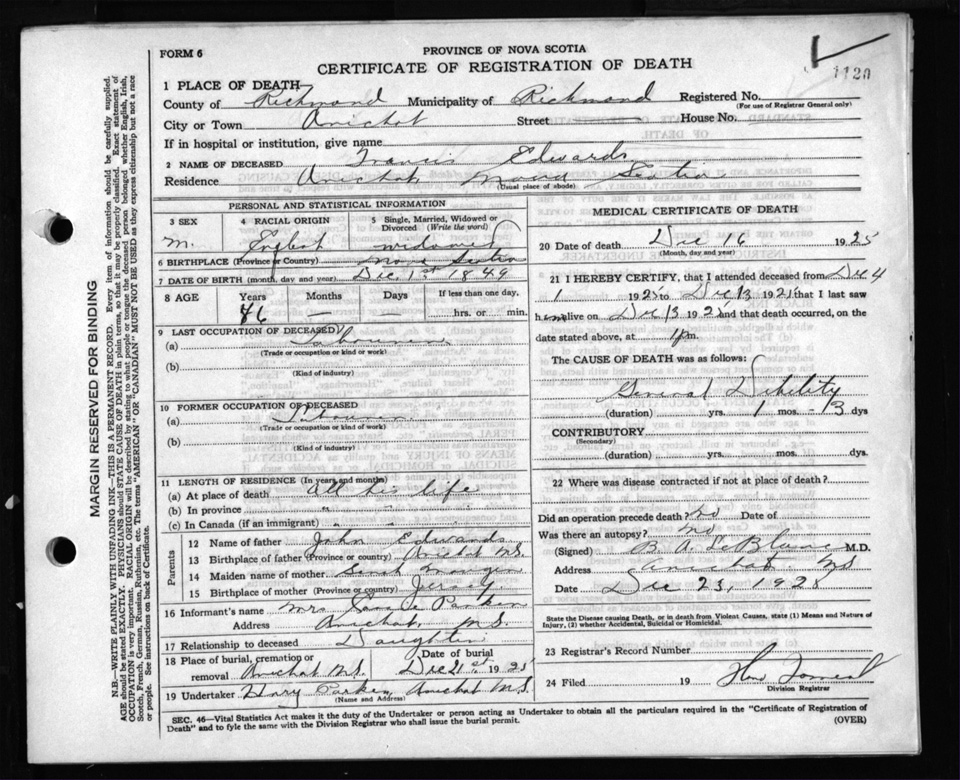 FORM 6
PROVINCE OF NOVA SCOTIA
CERTIFICATE OF REGISTRATION OF DEATH
1120
1 PLACE OF DEATH
County of Richmond Municipality of Richmond Registered No.
(For use of Registrar General only)
City or Town Arichat Street House No.
If in hospital or institution, give name
2 NAME OF DECEASED Francis Edwards
Residence Arichat, Nova Scotia
(Usual place of abode)
PERSONAL AND STATISTICAL INFORMATION
3 SEX 4 RACIAL ORIGIN 5 Single, Married, Widowed or Divorced (Write the word)
M. English widowed
6 BIRTHPLACE (Province or Country) Nova Scotia
7 DATE OF BIRTH (month, day and year) Dec 1st 1849
8 AGE Years Months Days If less than one day,
76 — — hrs. or min.
9 LAST OCCUPATION OF DECEASED
(a) Labourer
(Trade or occupation or kind or work)
(b)
(Kind of industry)
10 FORMER OCCUPATION OF DECEASED
(a) Labourer
(Trade or occupation or kind or work)
(b)
(Kind of industry)
11 LENGTH OF RESIDENCE (In years and months)
(a) At place of death all his life
(b) In province " "
(c) In Canada (if an immigrant) " "
Parents
12 Name of father John Edwards
13 Birthplace of father (Province or country) Arichat N.S.
14 Maiden name of mother Sarah
15 Birthplace of mother (Province or Country) Jersey
16 Informant's name Mrs Parker
Address Arichat, N.S.
17 Relationship to deceased Daughter
18 Place of burial, cremation or removal Arichat N.S. Date of burial Dec 21st 1925
19 Undertaker Parker, Arichat N.S.
(Name and Address)
MEDICAL CERTIFICATE OF DEATH
20 Date of death Dec 16 1925
(Month, day and year)
21 I HEREBY CERTIFY, that I attended deceased from Dec 4
1925 to Dec 13 1925 that I last saw
him alive on Dec 13 1925 and that death occurred, on the
date stated above, at m.
The CAUSE OF DEATH was as follows:
General Debility
(duration) yrs. 1 mos. 13 dys
CONTRIBUTORY
(Secondary)
(duration) yrs. mos. dys.
22 Where was disease contracted if not at place of death?
Did an operation precede death? no Date of
Was there an autopsy? no
(Signed) B. A. LeBlanc M.D.
Address Arichat NS
Date Dec 23, 1925
State the Disease causing Death, or in death from Violent Causes, state (1) Means and Nature of Injury, (2) whether Accidental, Suicidal or Homicidal.
23 Registrar's Record Number
24 Filed 19
Division Registrar
SEC. 46—Vital Statistics Act makes it the duty of the Undertaker or person acting as Undertaker to obtain all the particulars required in the "Certificate of Registration of
Death" and to fyle the same with the Division Registrar who shall issue the burial permit.
(OVER)
MARGIN RESERVED FOR BINDING
N.B.—WRITE PLAINLY WITH UNFADING INK—THIS IS A PERMANENT RECORD. Every item of information should be carefully supplied.
AGE should be stated EXACTLY. PHYSICIANS should STATE CAUSE OF DEATH in plain terms, so that it may be properly classified. Exact statement of
OCCUPATION is very important. RACIAL ORIGIN will be described by stating to what people or tongue the deceased person belonged whether English, Irish,
Scotch, French, German, Russian, Ruthenian, etc. The terms "AMERICAN" OR "CANADIAN" MUST NOT BE USED as they express citizenship but not a race
or people. See instructions on back of Certificate.